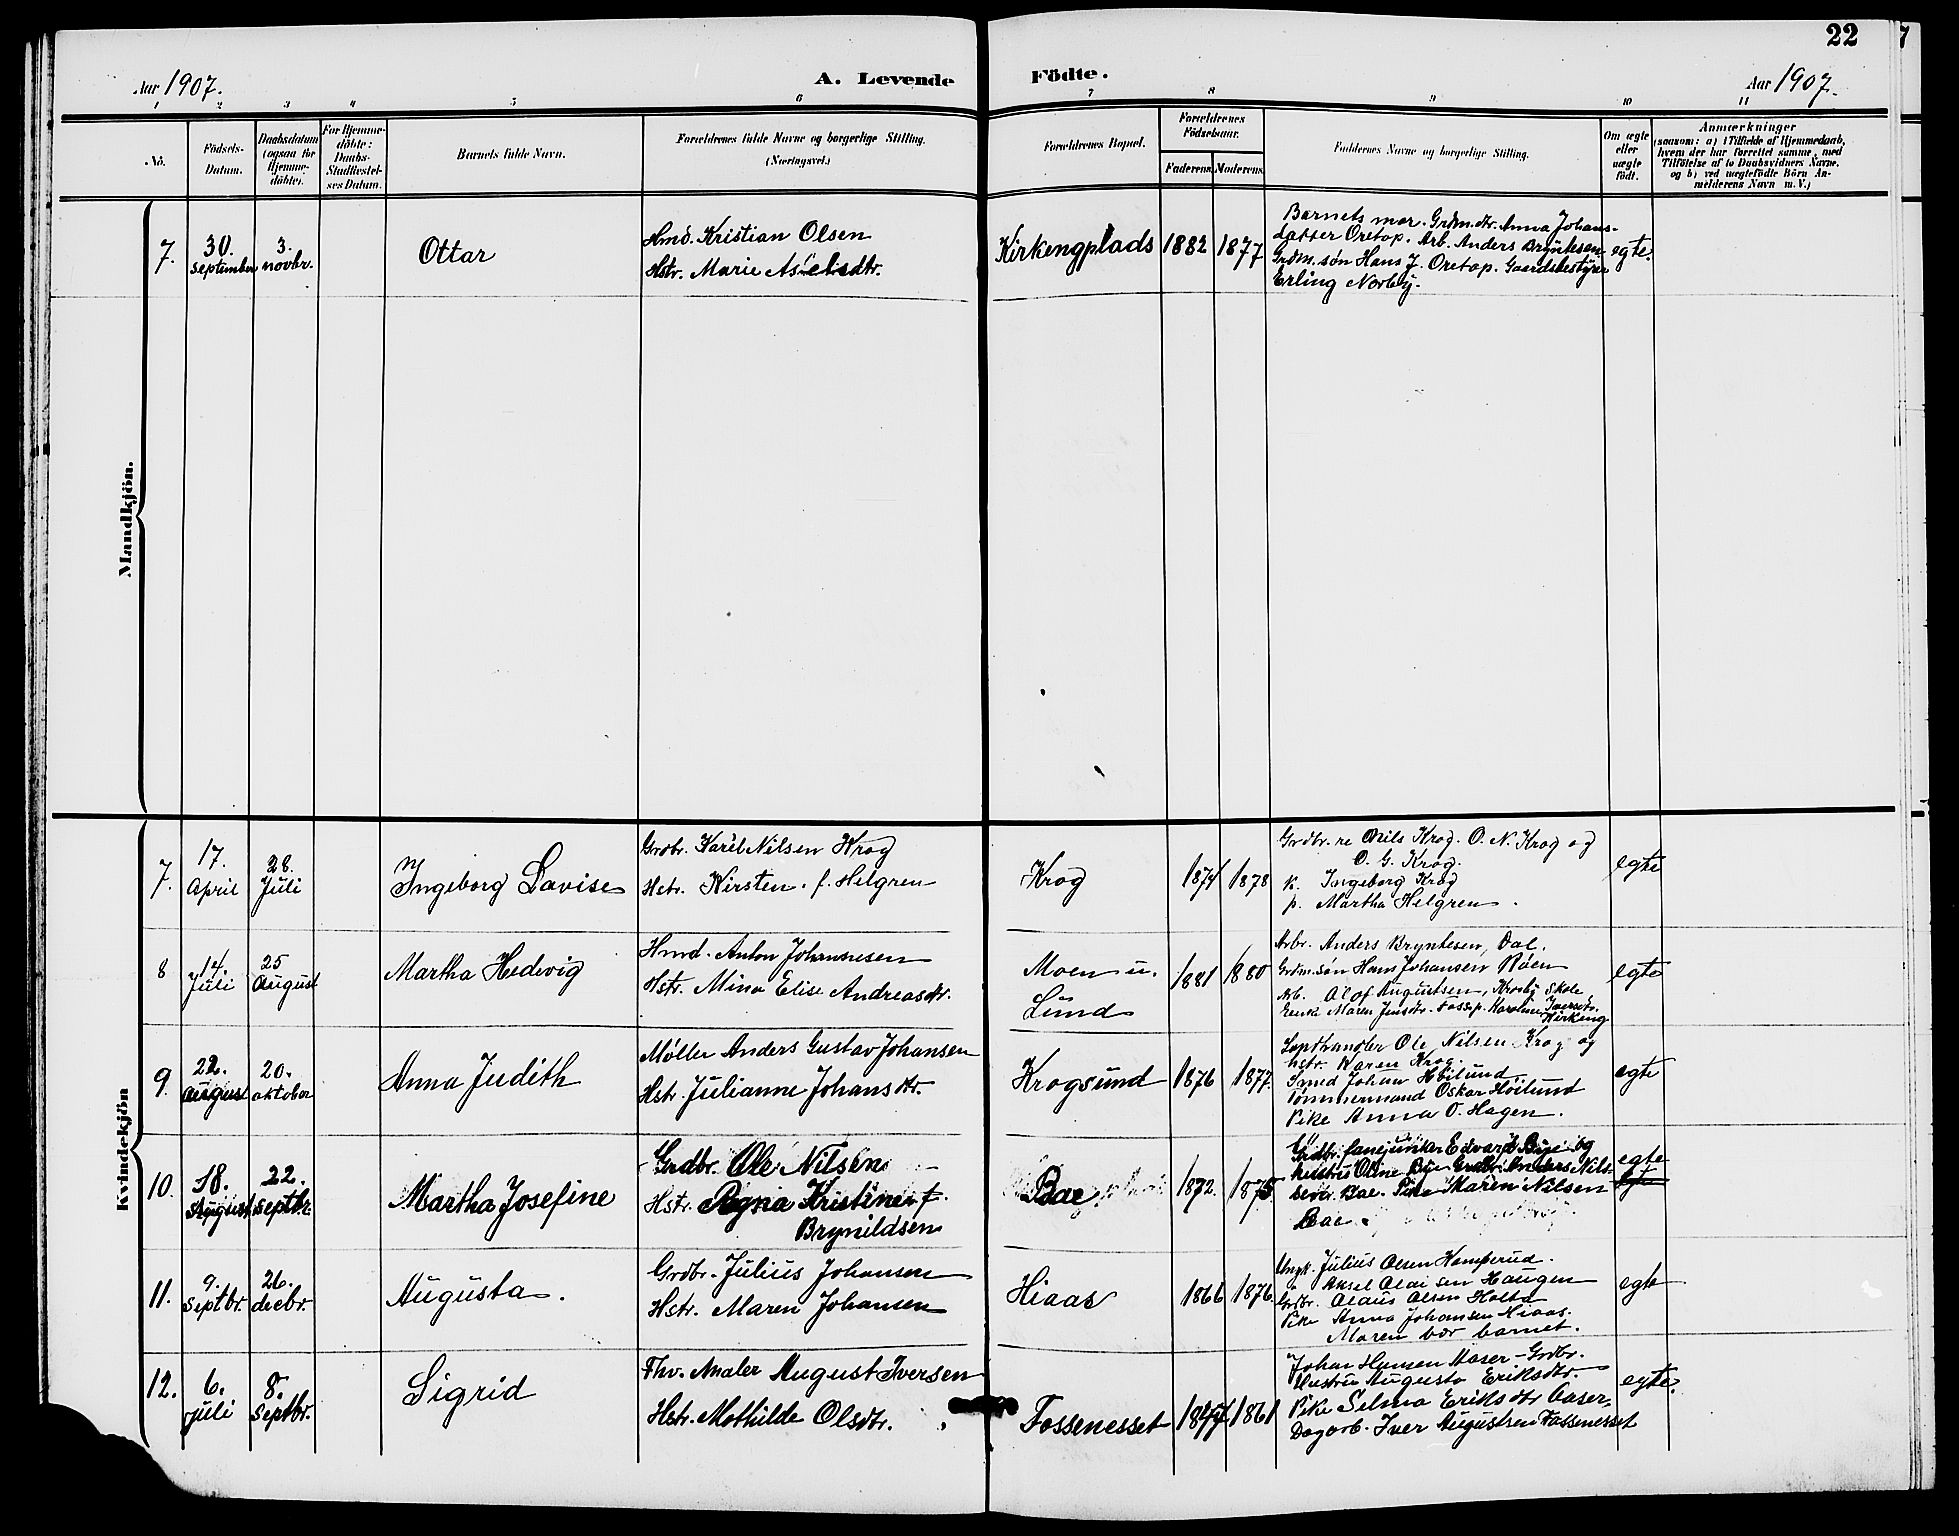 22
Aar 1907. A. Levende Födte. Aar 1907.
1 2 3 4 5 6 7 8 9 10 11
No.
Födsels-
Datum.
Daabsdatum
(ogsaa for
Hjemme-
döbte).
For Hjemme-
döbte:
Daabs-
Stadfæstel-
ses Datum.
Barnets fulde Navn.
Forældrenes fulde Navne og borgerlige Stilling.
(Næringsvei.)
Forældrenes Bopæl.
Forældrenes
Födselsaar.
Faderens. Moderens.
Faddernes Navne og borgerlige Stilling.
Om ægte
eller
uægte
födt.
Anmærkninger
(saasom: a) i Tilfælde af Hjemmedaab,
hvem der har forrettet samme, med
Tilföielse af to Daabsvidners Navne,
og b) ved uægtefödte Börn An-
melderens Navn m. V.)
Mandkjön.
7.
30.
September
3.
novbr.
Ottar
Hmd. Kristian Olsen
Hstr. Marie Aselsdtr.
Kirkengplads
1882
1877
Barnets mor. Grdm. dtr. Anna Johans-
datter Oretop. Arb. Anders Bryntesen.
Grdm. søn Hans J. Oretop. Gaardsbestyrer
Erling Norby.
egte.
Kvindekjön
7.
17.
April
28.
Juli
Ingeborg Lavise
Grdbr. Karel Nilsen Krog
Hstr. Kirsten. f. Helgren
Krog
1874
1878
Grdbr. re Nils Krog. O. N. Krog og
O. G. Krog.
k. Ingeborg Krog
p. Martha Helgren.
egte
8
14
Juli
25
August
Martha Hedvig
Hmd. Anton Johannesen
Hstr. Mina Elise Andreasdtr.
Moen u.
Lund
1881
1880
Arbr. Anders Bryntesen, Dal.
Grdm. søn Hans Johansen Röen
Arb. Olof Augustsen, Krosby Skole
Enke Maren Jensdtr. Fossep. Karoline Iversdtr.
Kirkeng
egte
9.
22.
August
20.
oktober
Anna Judith
Møller Anders Gustav Johansen
Hstr. Julianne Johansdtr.
Krogsund
1876
1877.
Ole Nilsen Krog og
hstr. Karen Krog.
Smed Johan Höilund
Tömmermand Oskar Höilund
Pike Anna O. Hagen.
egte
10.
18.
August
22.
Septbr.
Martha Josefine
Grdbr. Ole Nilsen
Hstr. Agna Kristine f.
Brynildsen
Bae
1872.
1875
Grdbr. Edvard Bye og
hustru Oline Bye Grdbr. Anders Nils-
sever. Bae. Pike Maren Nilsen
Bae
egte
egte
11.
9.
Septbr.
26.
decbr.
Augusta.
Grdbr. Julius Johansen
Hstr. Maren Johansen
Hiaas
1866
1876.
Ungk. Julius Olsen Hemperud.
Aksel Olai sen Haugen
Grdbr. Olaus Olsen Holta
Pike Anna Johansen Hiaas.
Maren bar barnet.
egte
12.
6.
juli
8.
Septbr.
Sigrid
Fhv. Maler August Iversen
Hstr. Mathilde Olsdtr.
Fossenesset
1847
1861
Johan Hansen Aaser - Grdbr.
Hustru Augusta Eriksdtr.
Pike Selma Eriksdtr Aaser,
Dagarb. Iver Augustsen Fossenesset
egte.